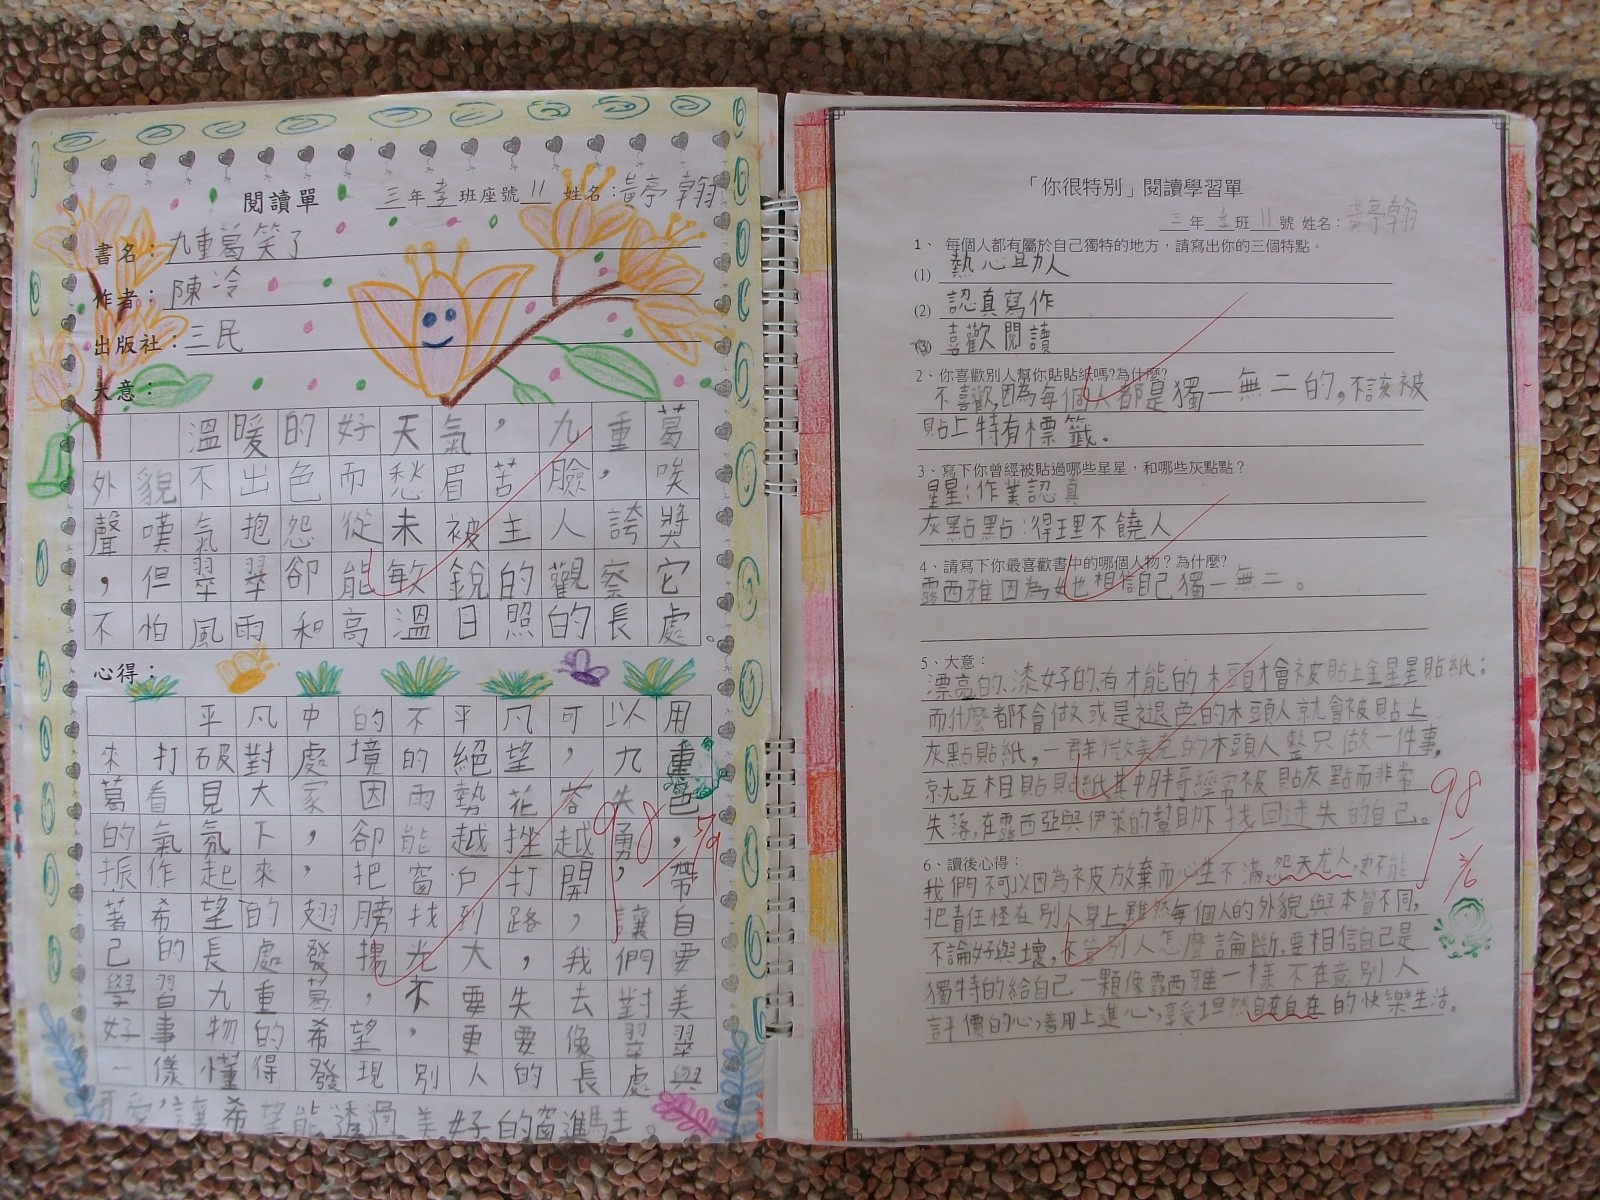 閱讀單
三年孝班座號11 姓名：黃亭翰
書名：九重葛笑了
作者：陳冷
出版社：三民
大意：
溫暖的好天氣，九重葛
外貌不出色而愁眉苦臉，唉
聲嘆氣抱怨從未被主人誇獎
，但翠翠卻能敏銳的觀察它
不怕風雨和高溫日照的長處。
心得：
平凡中的不平凡可以用
來打破對處境的絕望，九重
葛看見大家因雨勢花容失色
的氣氛下，卻能越挫越勇，
振作起來，把窗戶打開，帶
著希望的翅膀找到路，讓自
己的長處發揚光大，我們要
學習九重葛，不要失去對美
好事物的希望，更要像翠翠
一樣懂得發現別人的長處與
可愛，讓希望能透過美好的窗進駐。
98
「你很特別」閱讀學習單
三年孝班11號 姓名：黃亭翰
1、 每個人都有屬於自己獨特的地方，請寫出你的三個特點。
(1) 熱心助人
(2) 認真寫作
(3) 喜歡閱讀
2、你喜歡別人幫你貼貼紙嗎?為什麼?
不喜歡,因為每個人都是獨一無二的,不該被
貼上特有標籤.
3、寫下你曾經被貼過哪些星星，和哪些灰點點？
星星:作業認真
灰點點:得理不饒人
4、請寫下你最喜歡書中的哪個人物？為什麼?
露西雅因為她相信自己獨一無二。
5、大意：
漂亮的、漆好的、有才能的木頭才會被貼上金星星貼紙;
而什麼都不會做或是褪色的木頭人就會被貼上
灰點貼紙,一群微美克的木頭人整只做一件事,
就互相貼貼紙其中胖哥經常被貼灰點而非常
失落,在露西亞與伊萊的幫助下找回迷失的自己。
98
6、讀後心得：
我們不可以因為被放棄而心生不滿,怨天尤人,更不能
把責任怪在別人身上雖然每個人的外貌與本質不同,
不論好與壞,不管別人怎麼論斷,要相信自己是
獨特的給自己一顆像露西雅一樣不在意別人
評價的心,善用上進心,享受坦然自在自在的快樂生活。